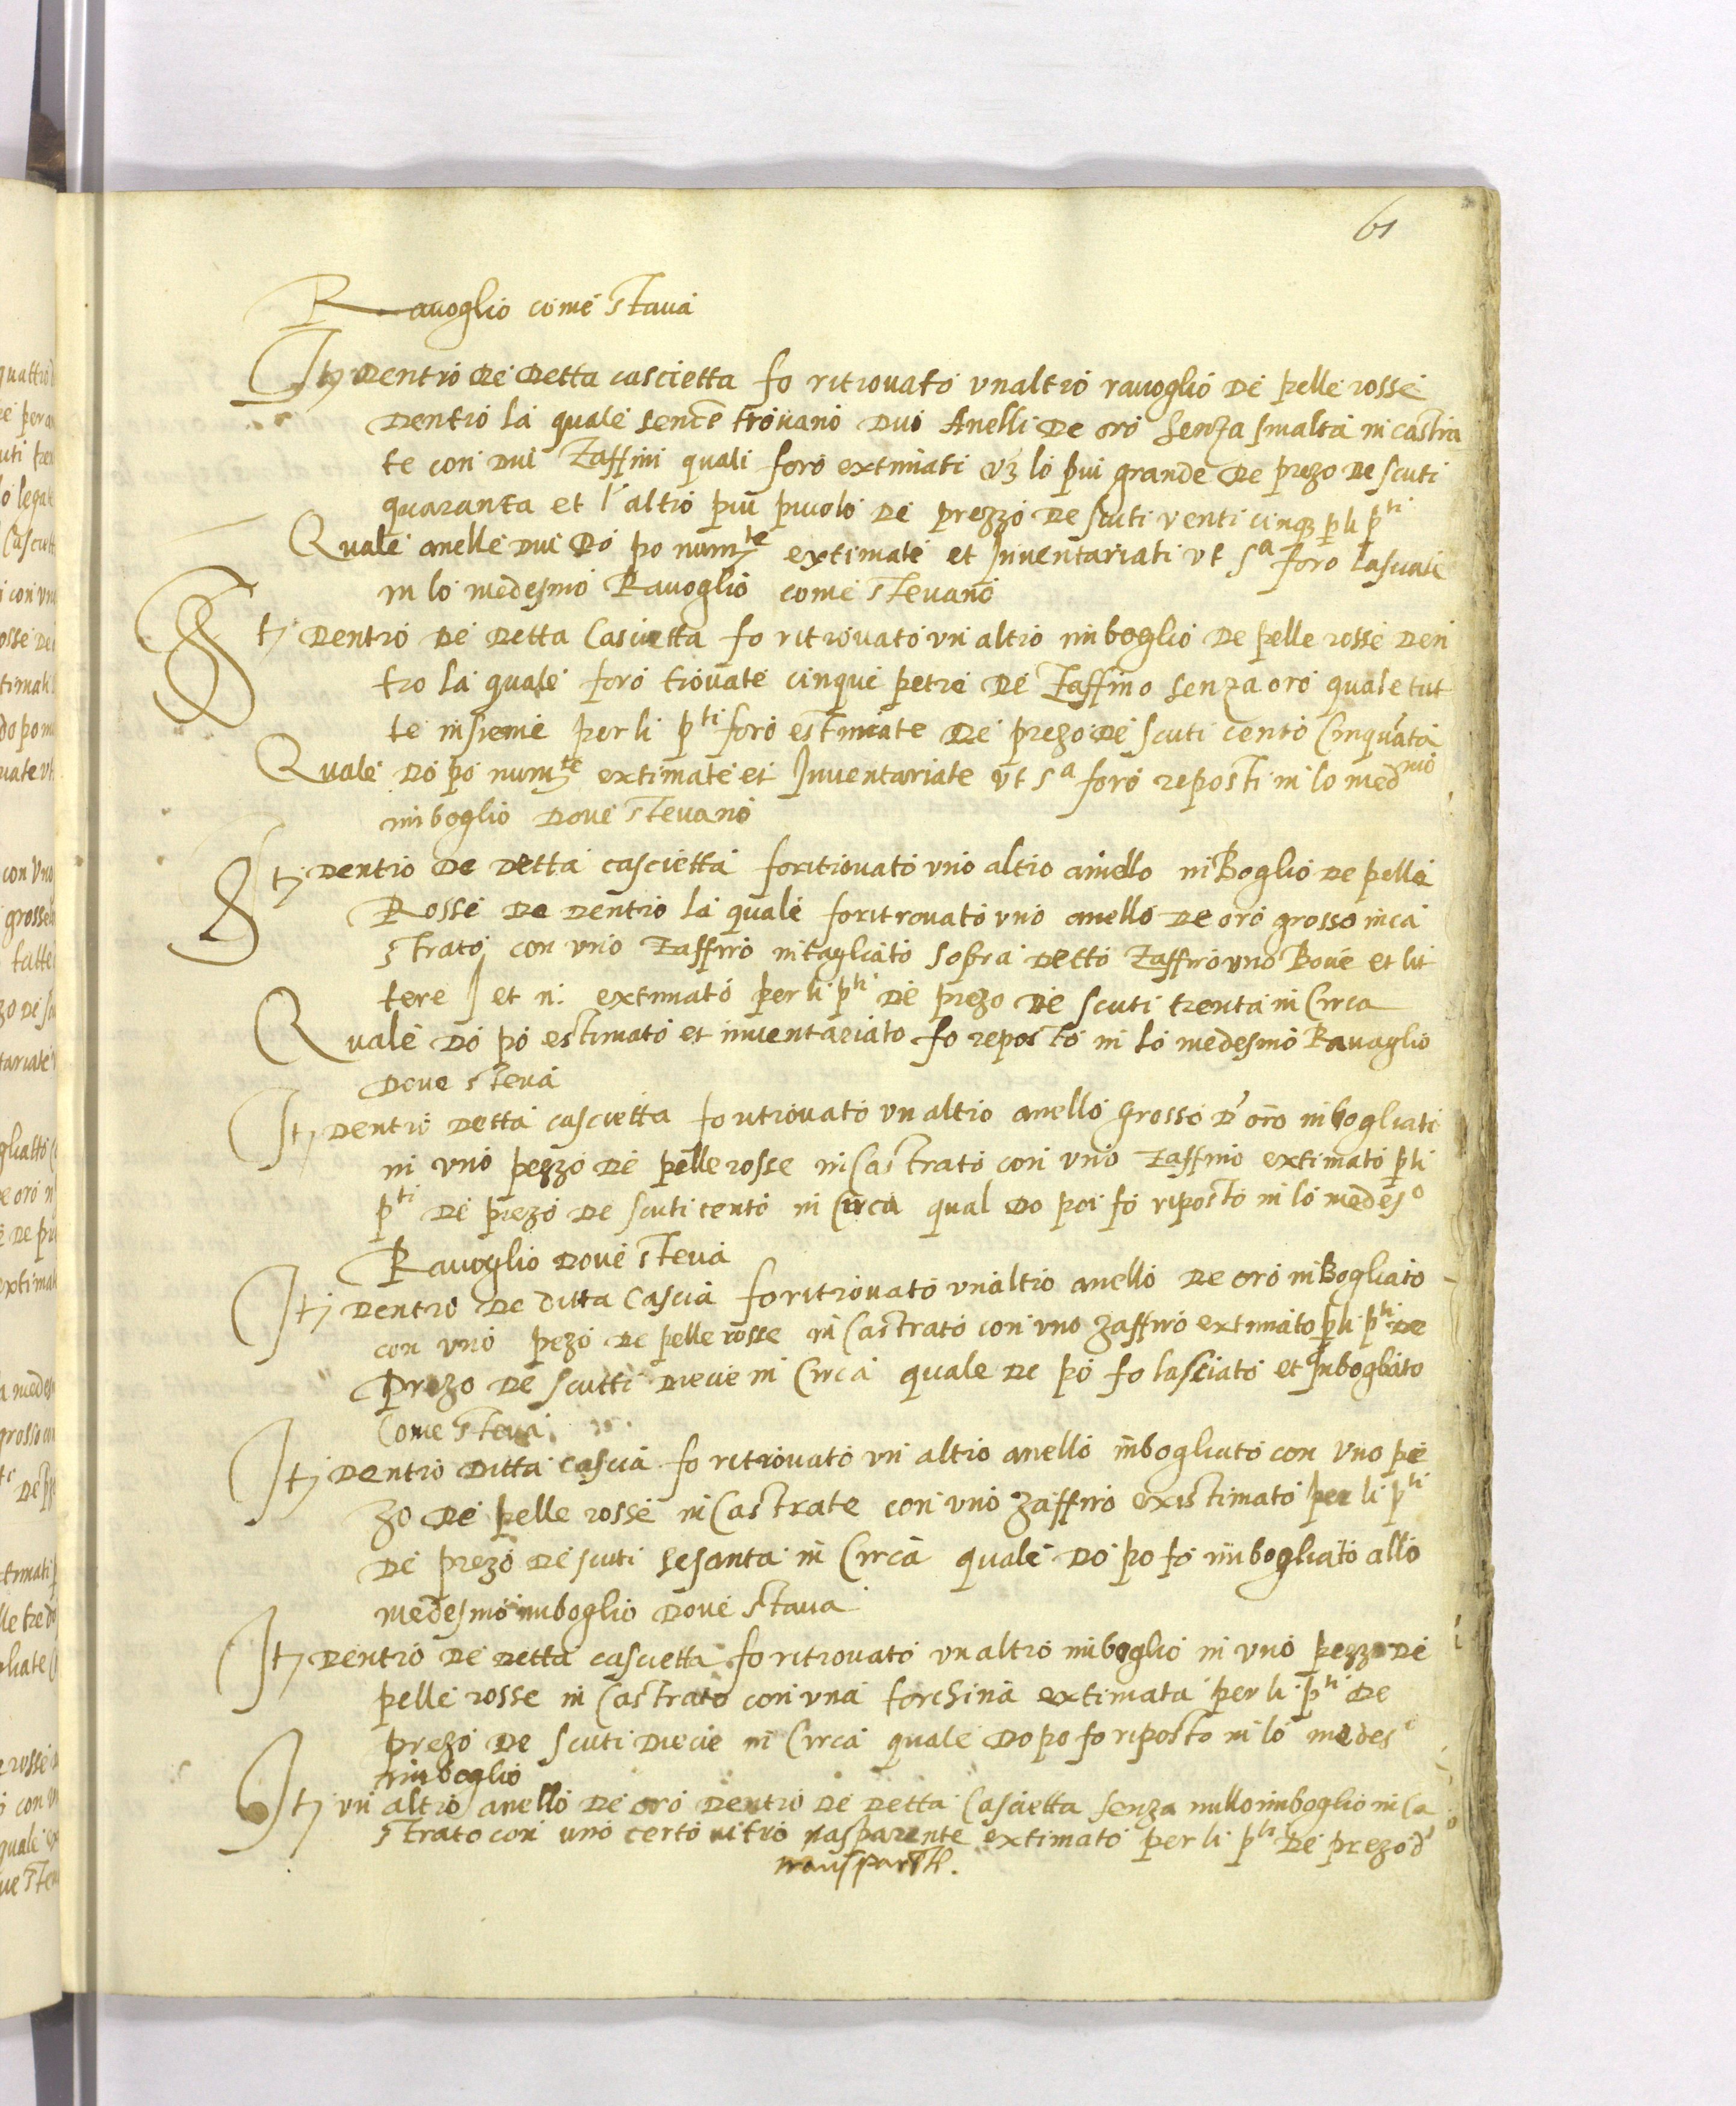 61
Ravoglio come stava
It dentro de detta cascietta fo ritrovato unaltro ravoglio de pelle rosse
dentro la quale sence trovano dui Anelli de oro senza smalta incastra
te con dui Zaffini quali foro extimati vz lo piu grande de prezo de scuti
quaranta et l'altro piu picolo de prezzo de scuti venti cinq p li p^ti
Quale anelle dui do po num^te extimate et Inventariati ut s^a foro lasciate
in lo medesmo Ravoglio come stevano
It dentro de detta Cascietta fo ritrovato un altro imboglio de pelle rosse den
tro la quale foro trovate cinque petre de Zaffino senza oro quale tut
te insieme per li p^ti foro estimate de prezo de scuti cento Cinquata
Quale do po num^te extimate et Inventariate ut s^a foro reposti in lo med^mo
imboglio dove stevano
It dentro de detta cascietta fo ritrovato uno altro anello inBoglio de pelle
Rosse de dentro la quale fo ritrovato uno anello de oro grosso inca
strato con uno Zaffiro intagliato sopra detto Zaffiro uno Bove et lit
tere J et n: extimato per li p^ti de prezo de scuti trenta in Circa
Quale do po estimato et inventariato fo reposto in lo medesmo Ravaglio
dove steva
It dentro detta cascietta fo ritrovato un altro anello grosso d'oro inbogliati
in uno pezzo de pelle rosse inCastrato con uno Zaffino extimato p li
p^ti de prezo de scuti cento in Circa qual do poi fo riposto in lo medes^o
Ravoglio dove steva
It dentro de ditta Cascia fo ritrovato unaltro anello de oro inBogliato
con uno pezo de pelle rosse inCastrato con uno zaffiro extimato p li p^ti de
Prezo de scutti diecie in Circa quale de po fo lasciato et Inbogliato
Come steva
It dentro ditta cascia fo ritrovato un altro anello inbogliato con uno pe
zo de pelle rosse inCastrate con uno zaffiro existimato per li p^ti
de prezo de scuti sesanta in Circa quale do po fo imbogliato allo
medesmo imboglio dove stava
It dentro de detta cascietta fo ritrovato un altro imboglio in uno pezzo de
pelle rosse inCastrato con una torchina extimata per li p^ti de
prezo de scuti diecie in Circa quale dopo fo riposto in lo medes^o
imboglio
It un altro anello de oro dentro de detta Cascietta senza nullo imboglio inCa
strato con uno certo vitro trasparente extimato per li p^ti de prezo d'